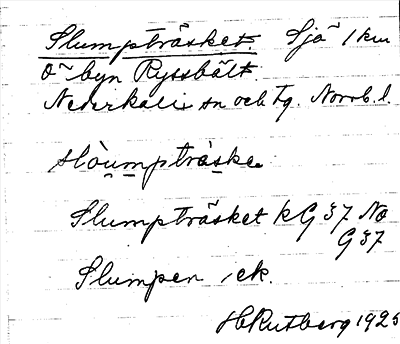 Slumpträsket. Sjö 1 km
ö byn Ryssbält.
Nederkalix sn och tg. Norrb. l.
slòumpträ̀ske.
Slumpträsket kG 37 No
G 37
Slumpen ek.
HRutberg 1925